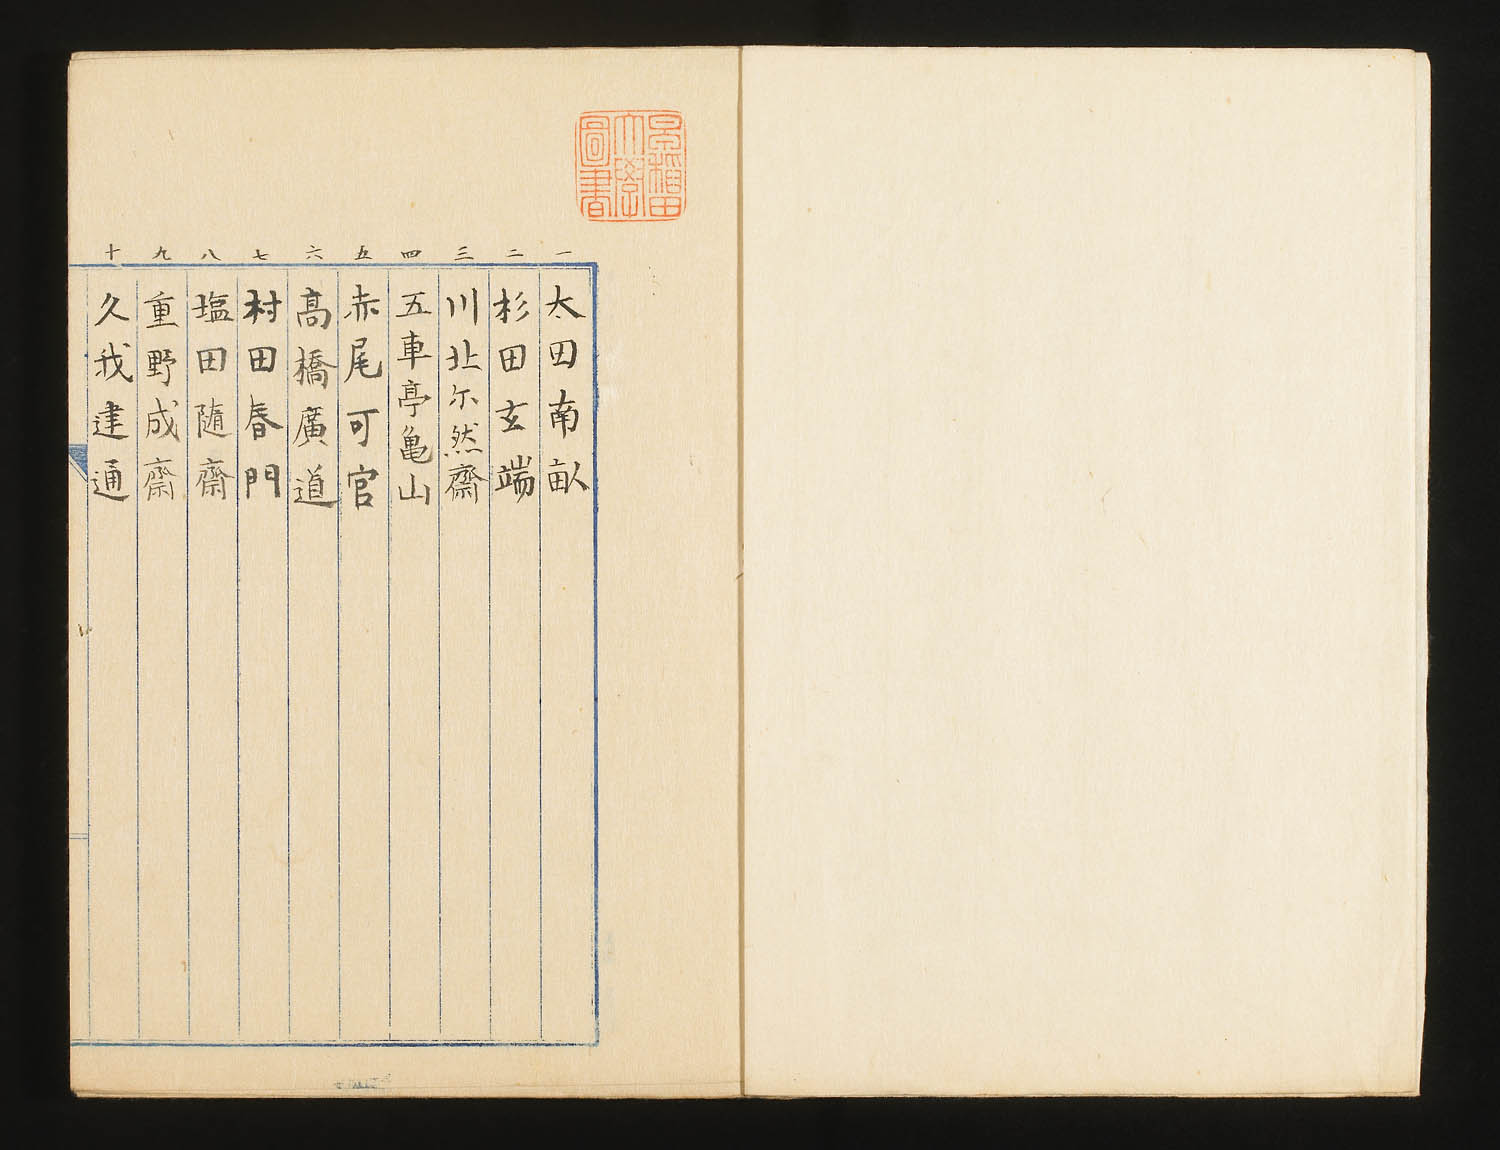 早稲田
大學
圖書
一 太田南畝
二 杉田玄端
三 川北尓然齋
四 五車亭亀山
五 赤尾可官
六 髙橋廣道
七 村田春門
八 塩田随齋
九 重野成齋
十 久我建通